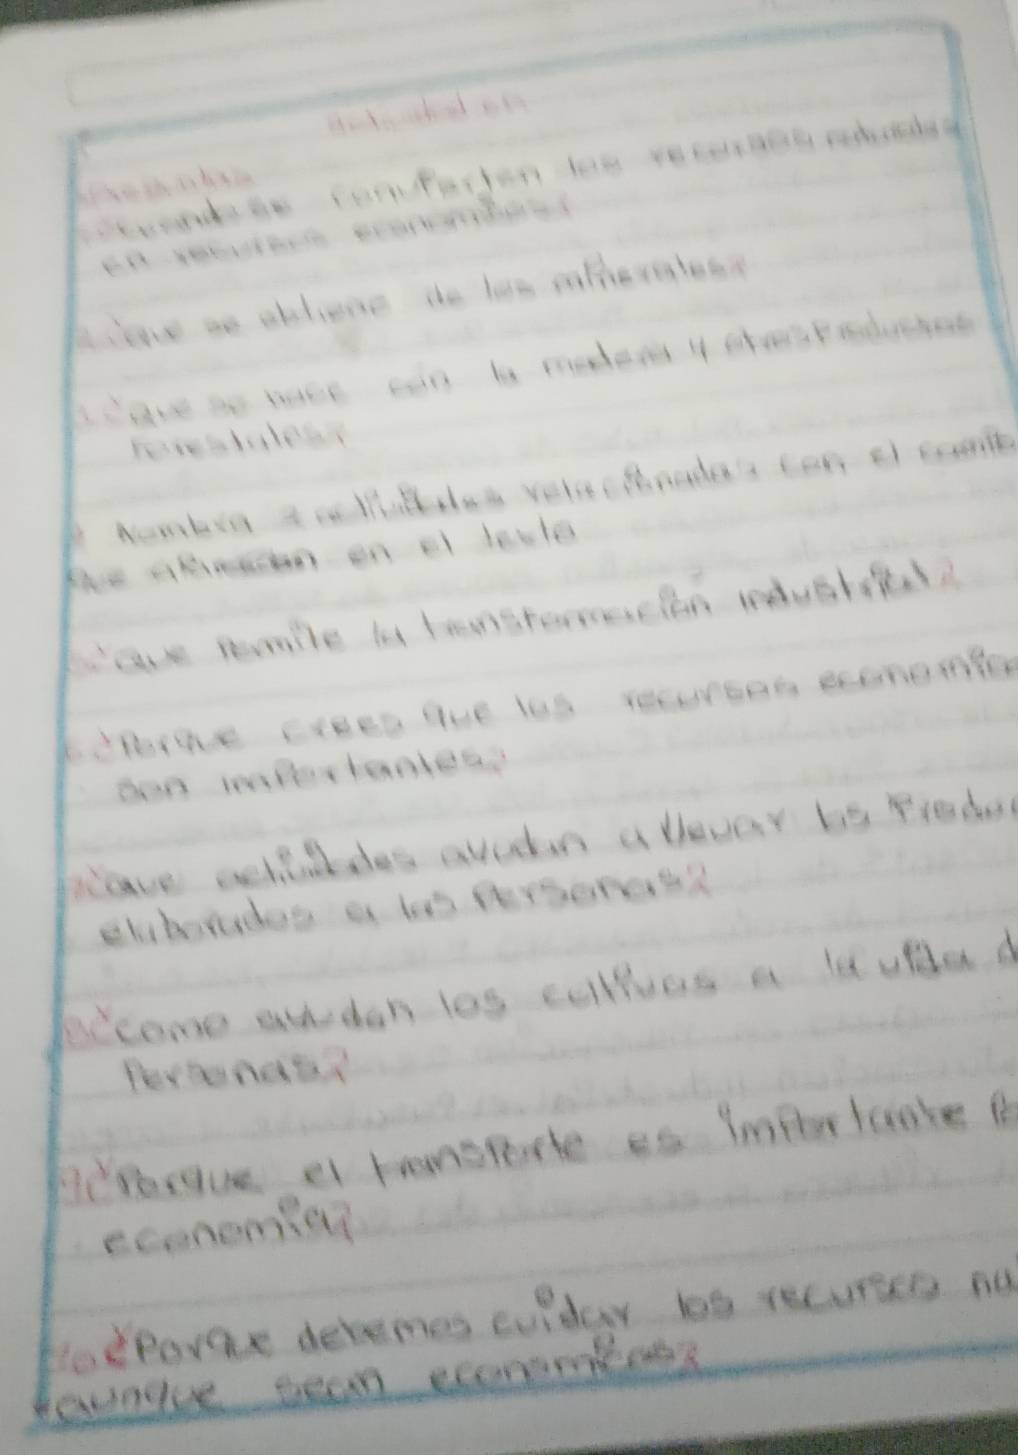 ¿cuando se convierten los recursos naturales
en recursos economicos?
¿Que se obtiene de los minerales?
¿Que se hace con la madera y otros Productos
Forestales?
Nombra 3 actividades relacionadas con el
en el texto
5 ¿Que Permite la transformación industrial?
6 ¿Porque crees que los recursos economico
son importantes?
7 ¿Que actividades ayudan a llevar los Produc
elaborados a las Personas?
8 ¿como ayudan los cultivos a la vida d
Personas?
9 ¿Porque el transporte es importante P
economia?
10 ¿Porque debemos cuidar los recursos na
aunque sean economicos?